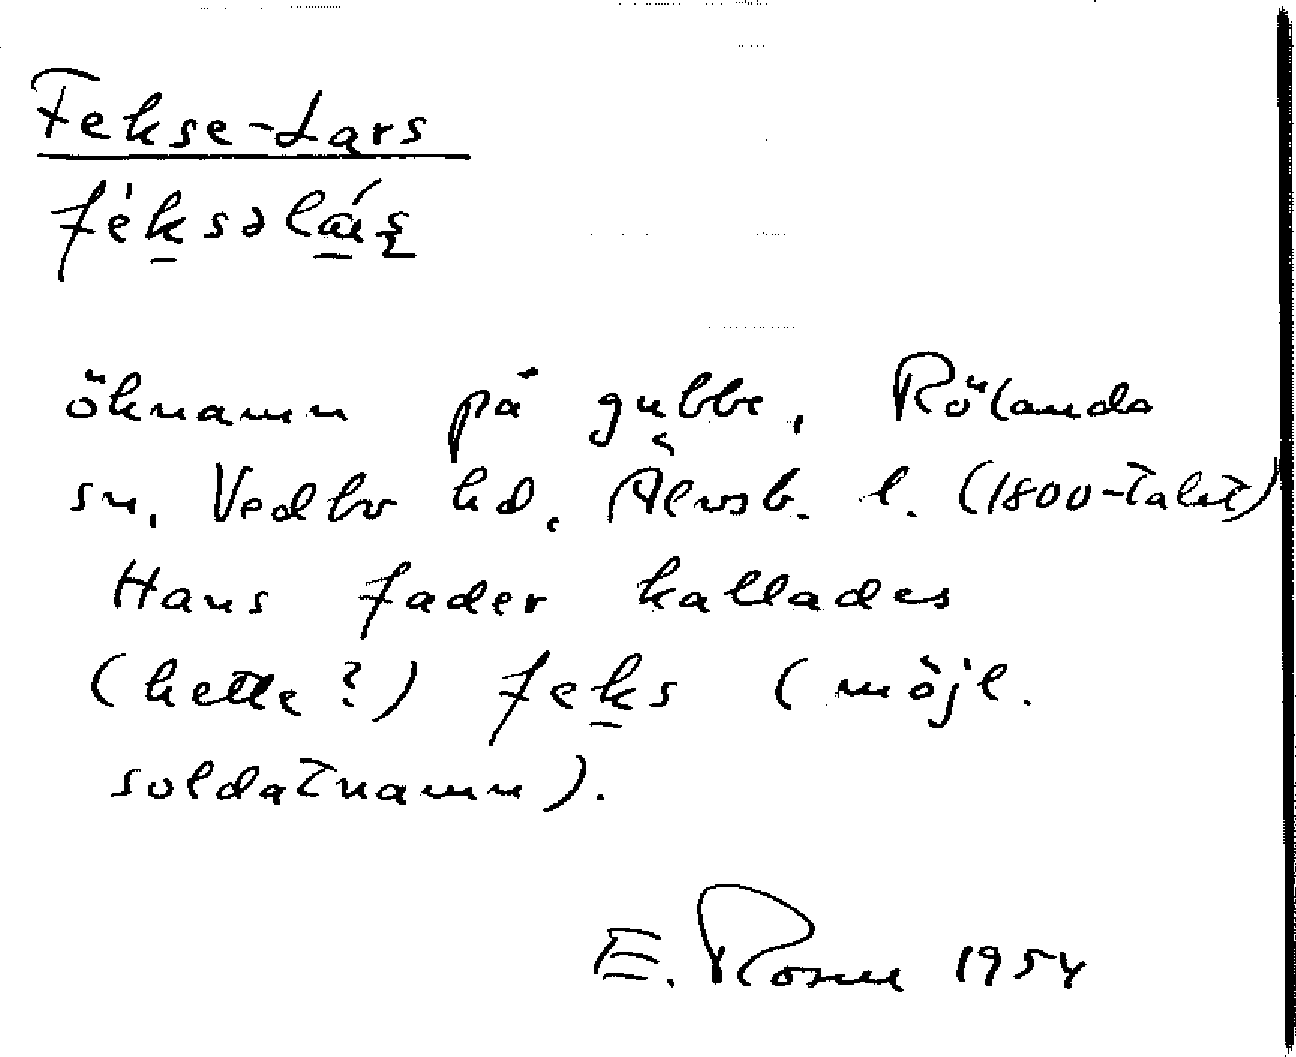 Fekse-Lars
féksəlás
öknamn på gubbe, Rölanda
sn, Vedbo hd, Älvsb. l. (1800-talet)
Hans fader kallades
(hette?) Feks (möjl.
soldatnamn).
E. Rosén 1954